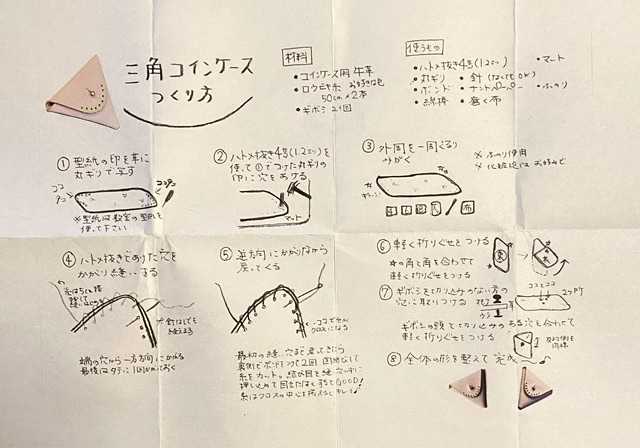 三角コインケース
つくり方
材料
・コインケース用 牛革
・ロウビキ糸 お好きな色
50cm×2本
・ギボシ 1個
使うもの
・ハトメ抜き4号(1.2ミリ)
・丸ギリ
・針(なくてもOK)
・ボンド
・サンドペーパー
・綿棒
・磨く布
・マート
・ふのり
① 型紙の印を革に
丸ギリで写す
ココ
※型紙は教室の型紙を
使って下さい
② ハトメ抜き4号(1.2ミリ)を
使って①でつけた丸ギリの
印に穴をあける
マート
③ 外周を一周ぐるり
みがく
※ふのり使用
布
④ ハトメ抜きであけた穴を
かがり縫いする
針はなしでも
端の穴から一方方向にかがる
最後はタテに1回かがっておく
⑤ 逆方向にかがりながら
戻ってくる
最初の縫い穴まで戻ってきたら
裏側でボンドをつけ2回固結びして
糸をカット。結び目を縫い穴の中に
糸はクロスの中心を押さえるとキレイ
⑥ 軽く折りぐせをつける
★の角と角を合わせて
軽く折りぐせをつける
⑦ ギボシを切り込みのない方の
穴に取りつける
ココとココ
ギボシの頭と切り込みのある穴を合わせて
軽く折りぐせをつける
⑧ 全体の形を整えて完成